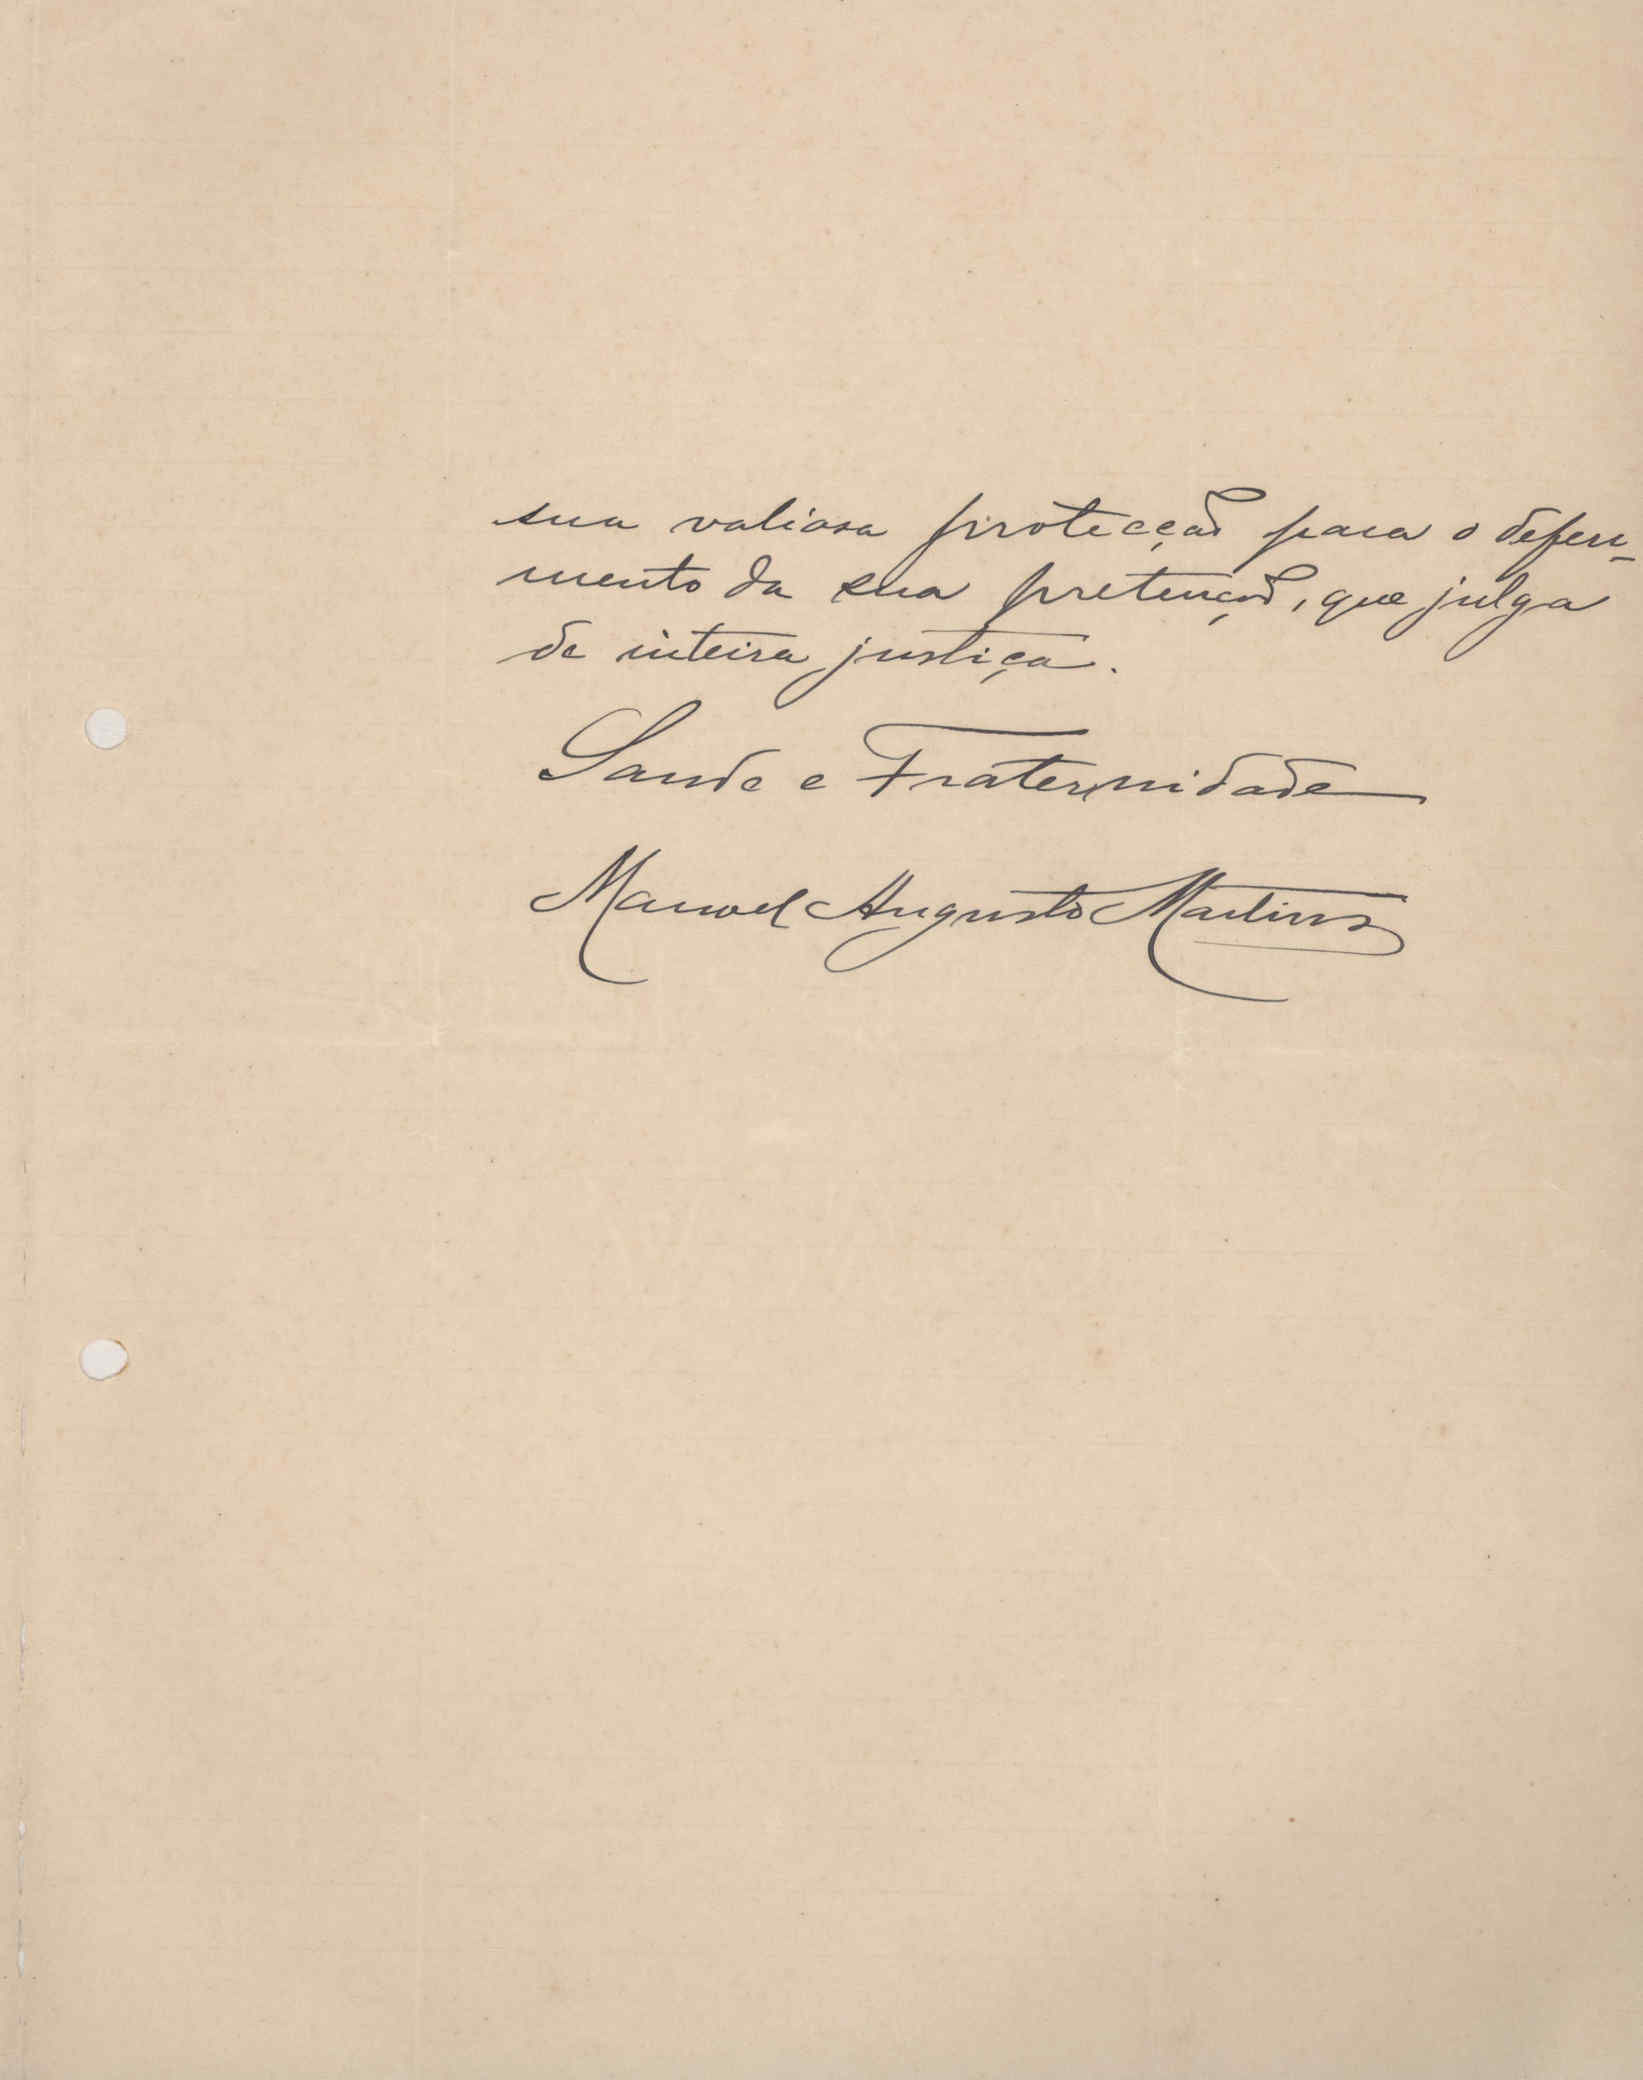 sua valiosa protecção para o deferi-
mento da sua pretenção, que julga
de inteira justiça.
Saude e Fraternidade
Manoel Augusto Martins